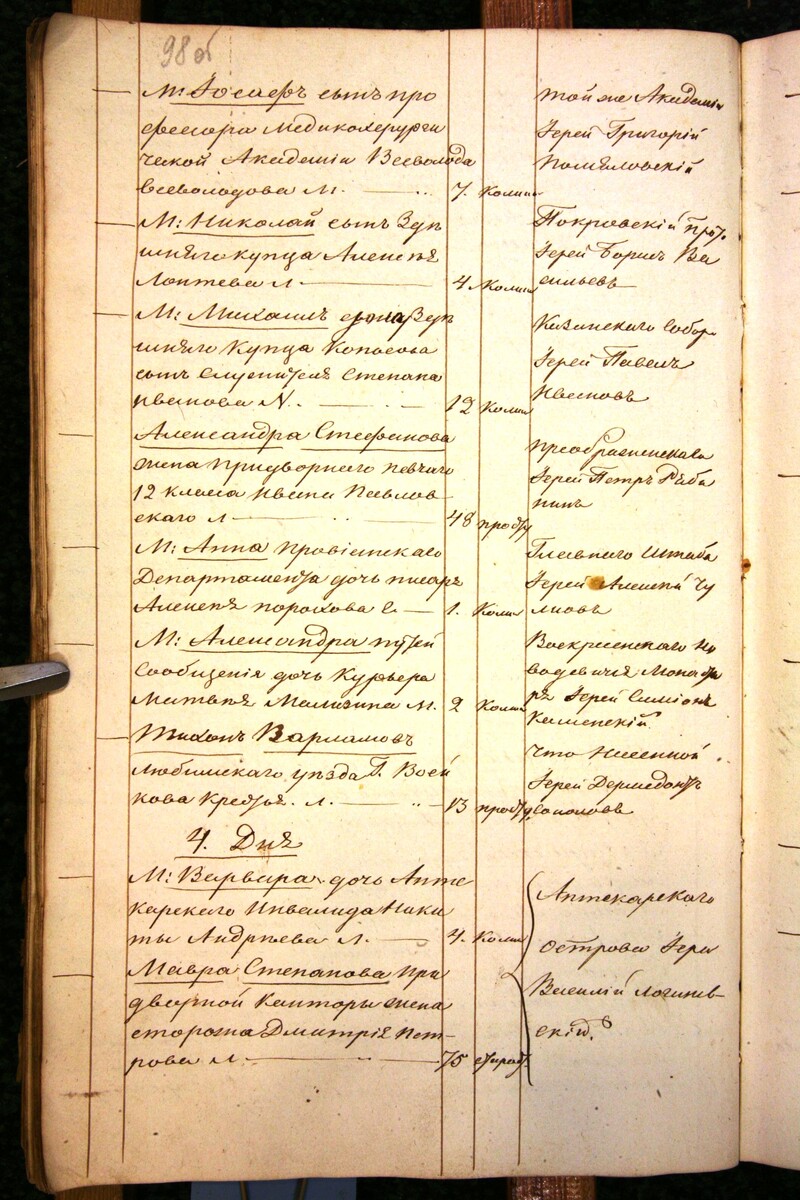 98 об
М: Іосафъ сынъ про
фессора Медикохерурги
ческой Академіи Всеволода
Всеволодова М. — 7. Колики
той же Академіи
Іерей Григорій
Помяловскій
М: Николай сынъ Зуп
шняго купца Алексѣя
Лоптева Л — 4 Колики
Покровскій Прот.
Іерей Борисъ Ва
сильевъ
М: Михаилъ
шняго Купца Копосова
сынъ Служителя Степана
Иванова М. — 12 Колик
Казанскаго Собор
Іерей Павелъ
Ивановъ
Александра Стефанова
жена придворнаго певчаго
12 класа Ивана Павлов
скаго Л — 48 прост
преображенскаго
Іерей Петръ Раба
нинъ
М: Анна провіантскаго
Департамента дочь писаря
Алексѣя порохова С. — 1. Колик
Главнаго Штаба
Іерей Алексѣй Чу
лковъ
М: Александра путей
Сообщенія дочь Курьера
Матвѣя Малигина М. 2 Колик
Воскресенскаго Но
водевичья Монасты
ря Іерей Симіонъ
Каменскій
Тихонъ Варламовъ
Любимскаго уѣзда Г. Воей
кова Крестья. Л. — 13 прост
что Іерей
Соколовъ
4. Дня
М: Варвара дочь Апте
карскаго Инвалида Ники
ты Андрѣева Л. — 4. Колик
Мавра Степанова при
дворной Канторы жена
сторожа Дмитрія Пет-
рова Л — 75 старос.
Аптекарскаго
острова Іерей
Василій Логинев-
скій